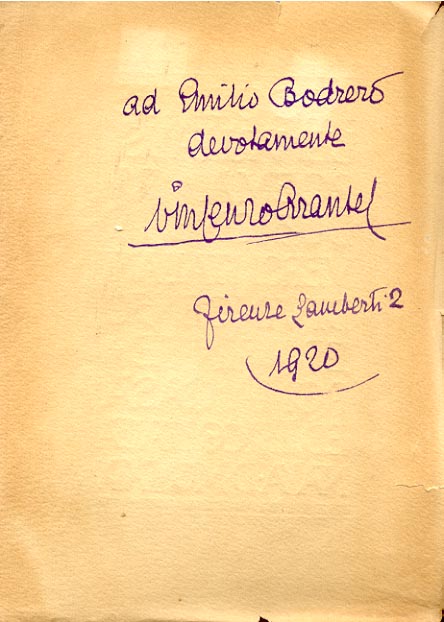 ad Emilio Bodrero
devotamente
Firenze Lamberti 2
1920